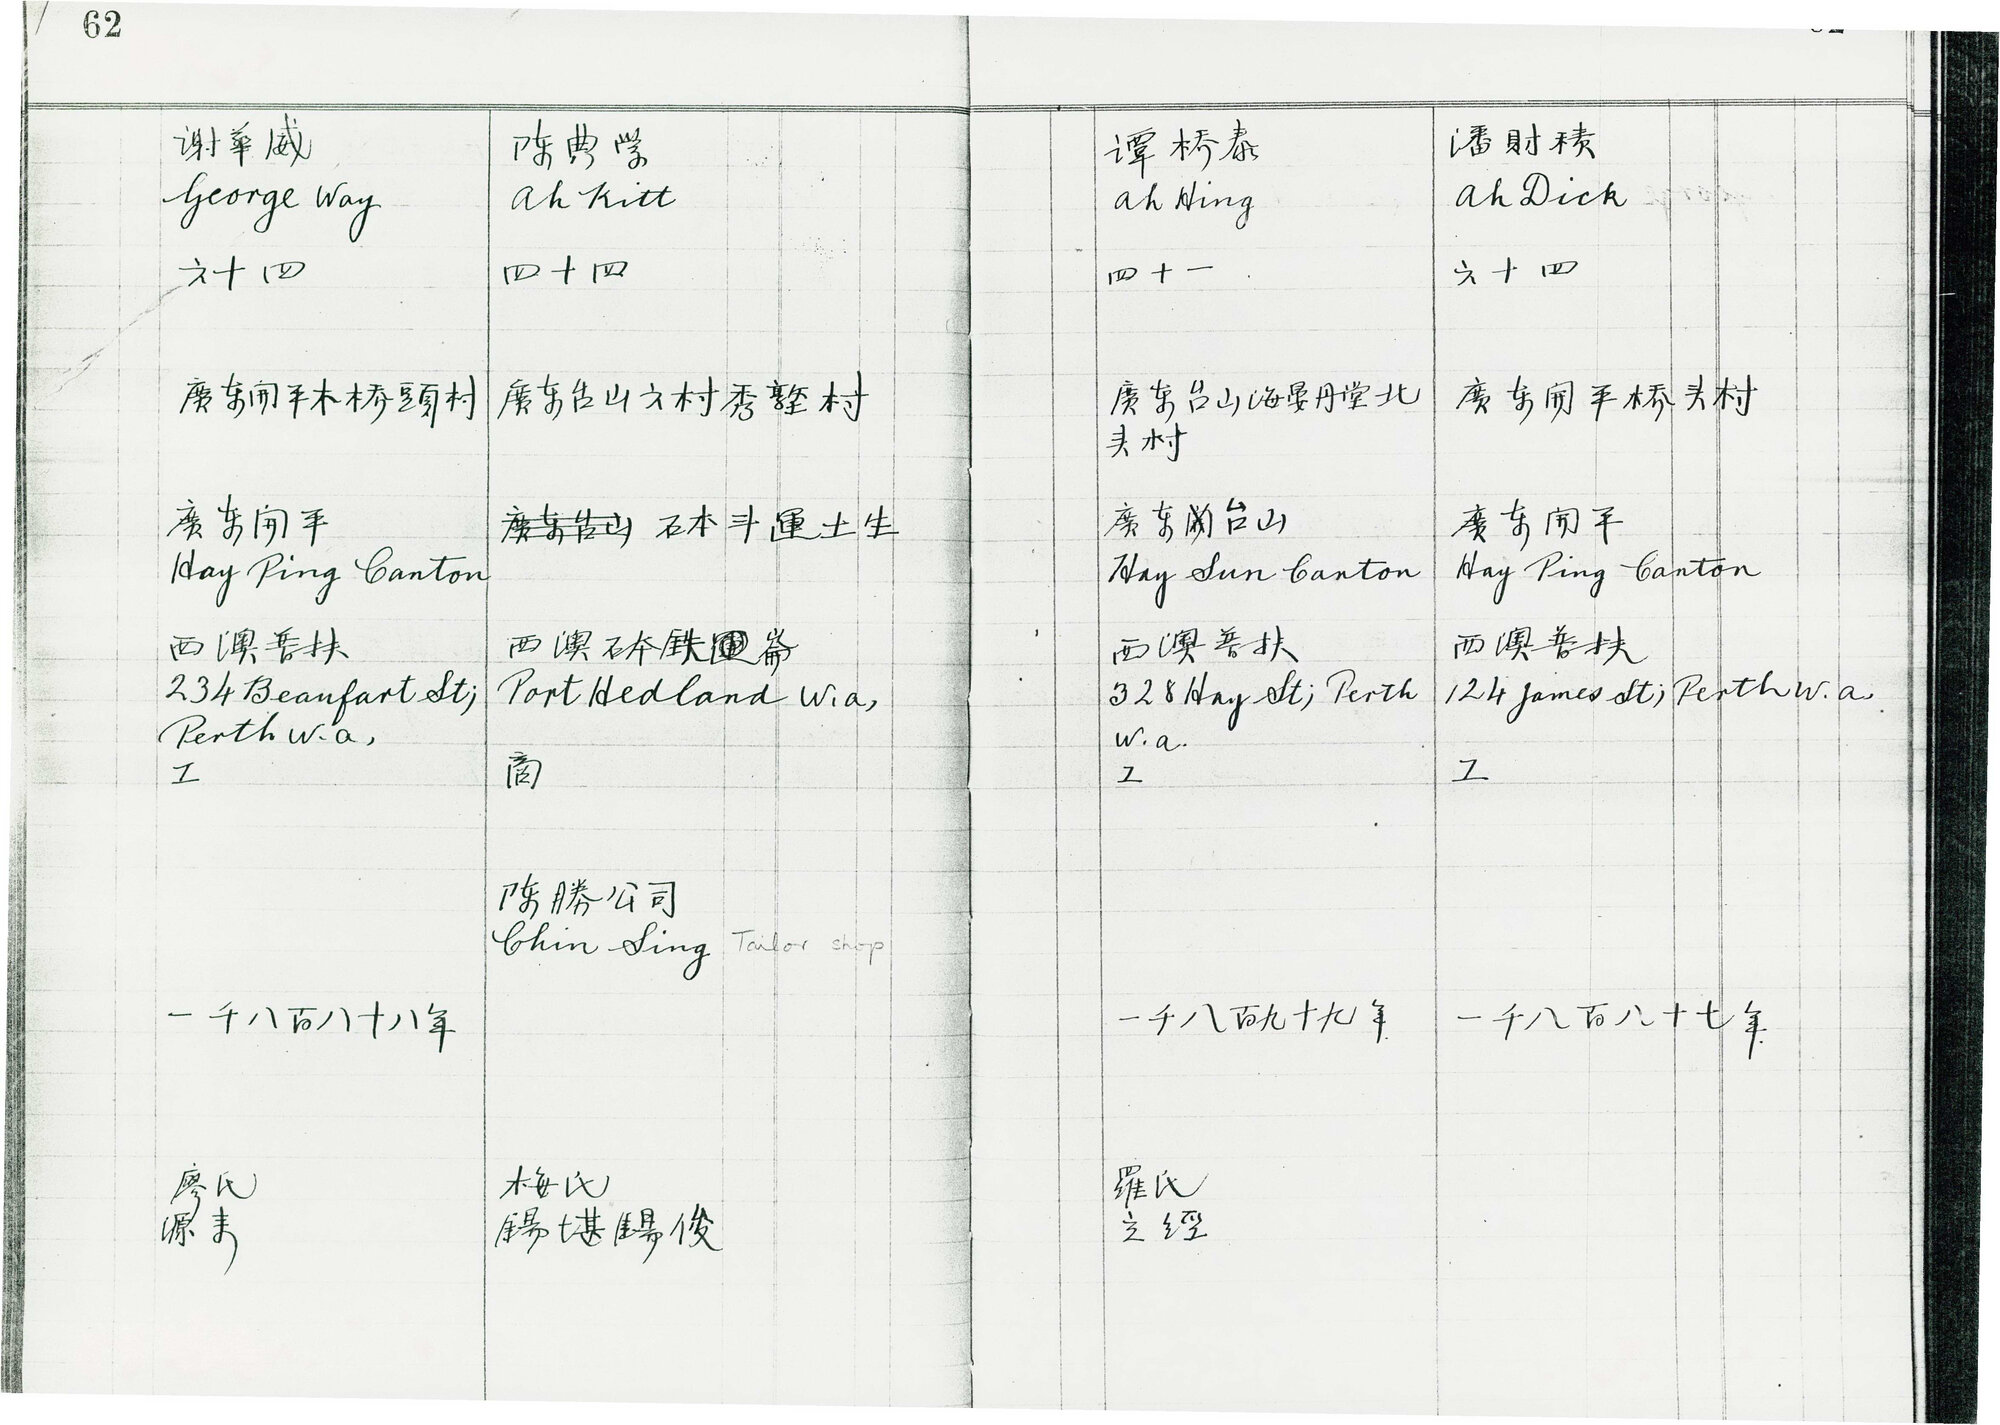 62
谢華威
George Way
六十四
廣东開平木桥頭村
廣东開平
Hay Ping Canton
西澳普扶
234 Beaufart St;
Perth W.a,
工
一千八百八十八年
廖氏
源
陈典学
ah Kitt
四十四
廣东台山六村秀墪村
廣东台山 砵斗運土生
西澳砵鉄崙
Port Hedland W.a,
商
陈勝公司
Chin Sing Tailor shop
梅氏
錫堪錫俊
62
谭桥泰
ah Hing
四十一
廣东台山海晏丹堂北
头村
廣东台山
Hay Sun Canton
西澳普扶
328 Hay St; Perth
W.a.
工
一千八百九十九年
羅氏
立經
潘財積
ah Dick
六十四
廣东開平桥头村
廣东開平
Hay Ping Canton
西澳普扶
124 James St; Perth W.a.
工
一千八百八十七年